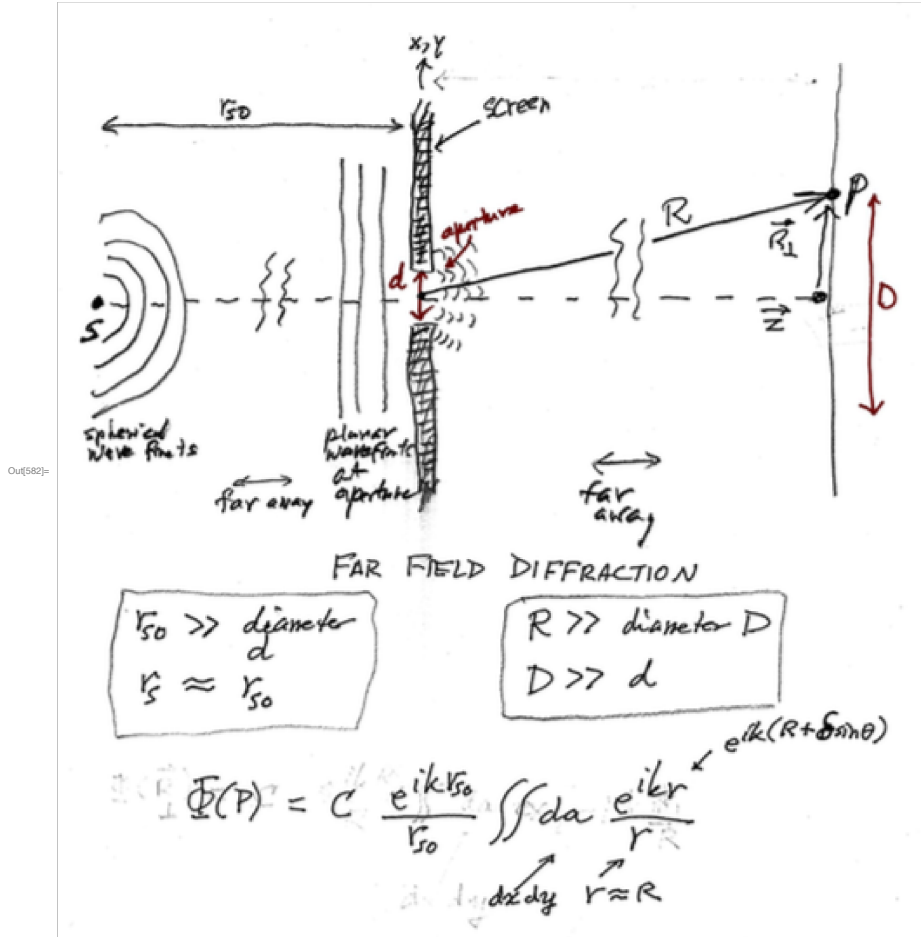 x, y
r_so
screen
aperture
R
P
R⃗_⊥
d
D
S
z⃗
spherical
wave fronts
planar
wavefronts
at
aperture
far away
far
away
Out[582]=
FAR FIELD DIFFRACTION
r_so >> diameter
d
r_s ≈ r_so
R >> diameter D
D >> d
e^{ik(R+δsinθ)}
Φ(P) = C e^{ikr_so}/r_so ∬ da e^{ikr}/r
dxdy r≈R